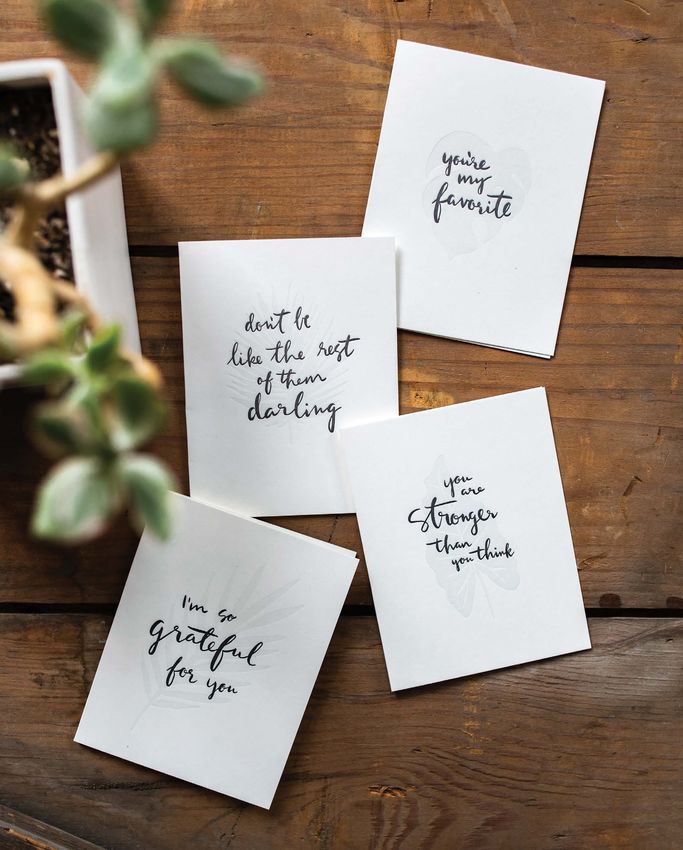 you're
my
favorite
don't be
like the rest
of them
darling
you
are
stronger
than
you think
I'm so
grateful
for you